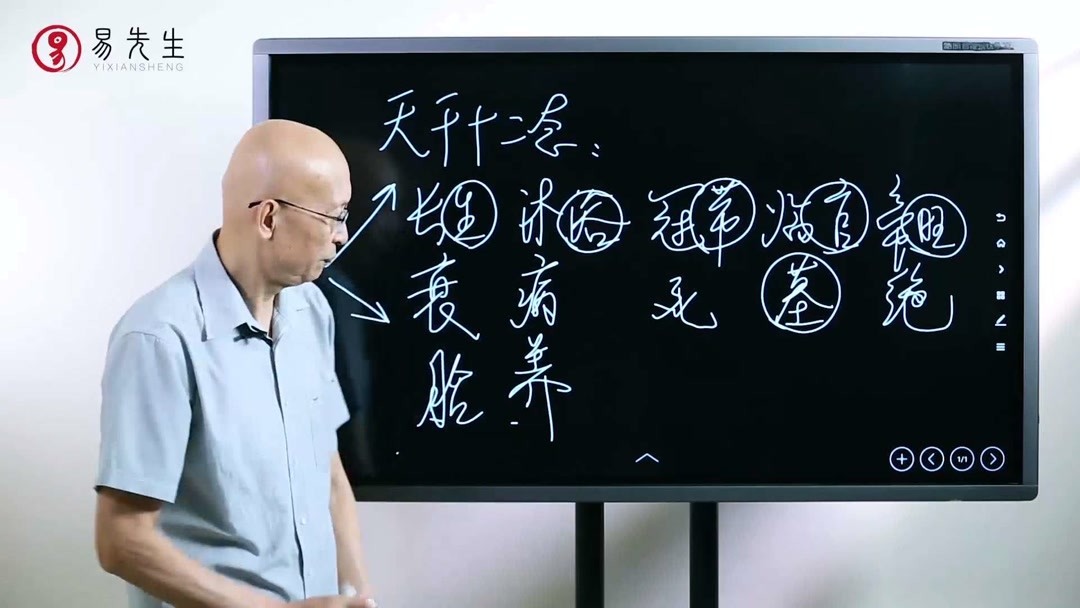 易先生
YIXIANSHENG
天干十二态:
长生 沐浴 冠带 临官 帝旺
衰 病 死 墓 绝
胎 养
1/1